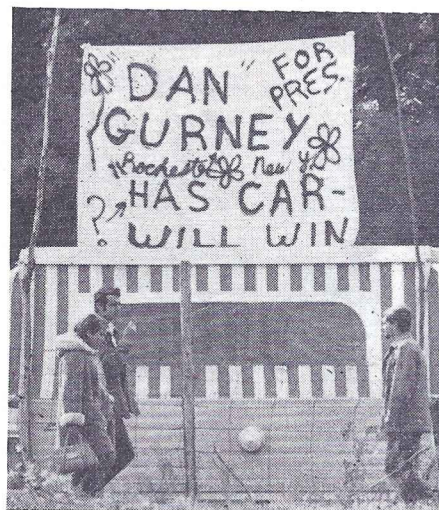 "DAN"
GURNEY
FOR
PRES.
"Rochester" New Y.
? HAS CAR-
WILL WIN